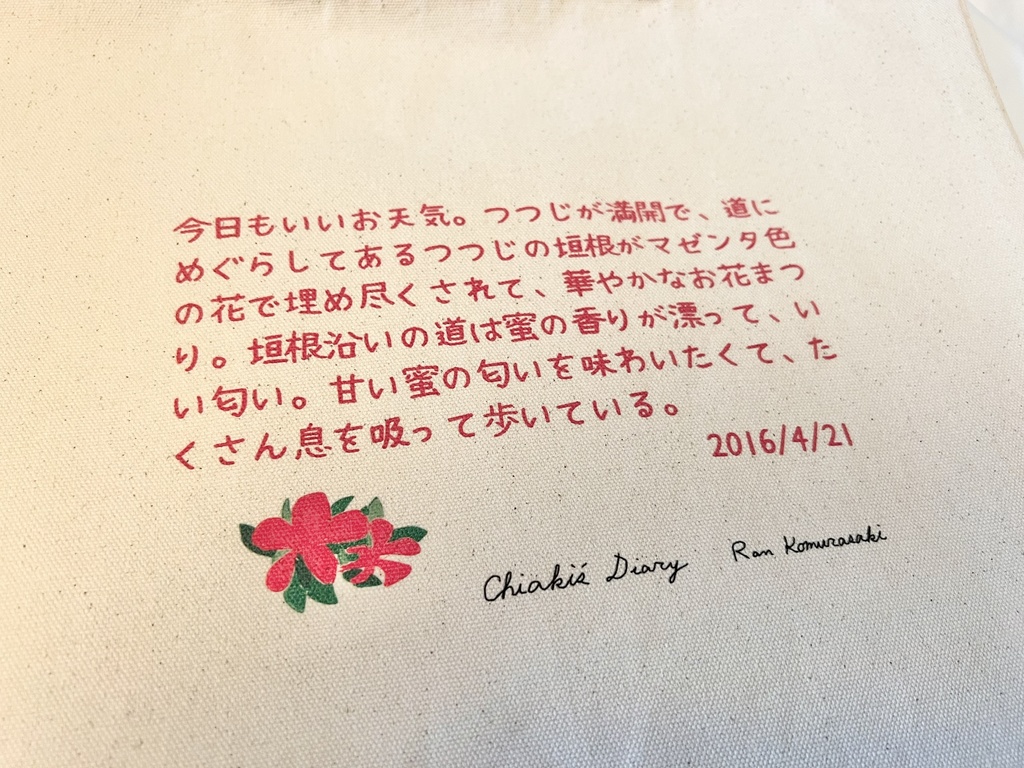 今日もいいお天気。つつじが満開で、道に
めぐらしてあるつつじの垣根がマゼンタ色
の花で埋め尽くされて、華やかなお花まつ
り。垣根沿いの道は蜜の香りが漂って、い
い匂い。甘い蜜の匂いを味わいたくて、た
くさん息を吸って歩いている。
2016/4/21
Chiaki's Diary Ran Komurasaki